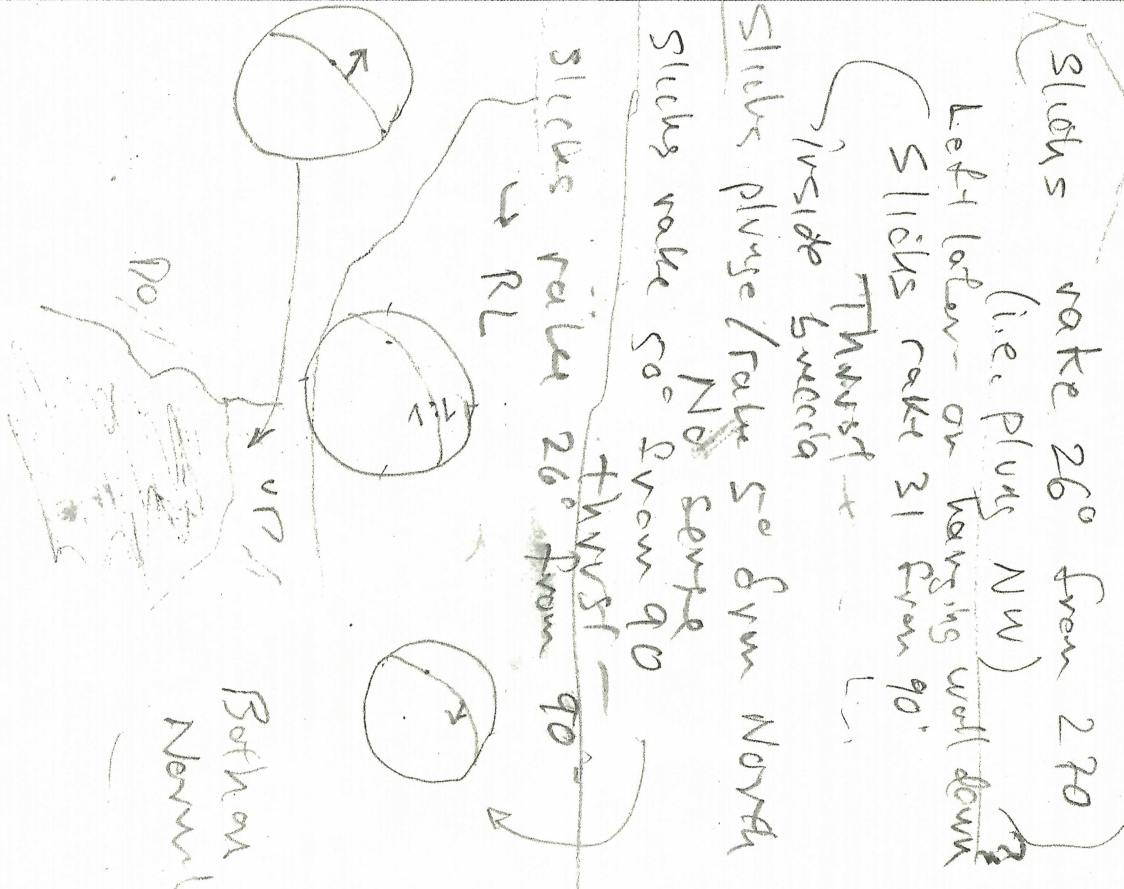 Slicks rake 26° from 270
(i.e. plung NW)
Left later- on hanging wall down
Slicks rake 31 from 90°
Thrust
inside breccia
Slicks plunge/rake 5° from North
No sense
Slicks rake 50° from 90
thrust
Slicks rake 26° from 90
→ RL
UP
Do
Both on
Normal